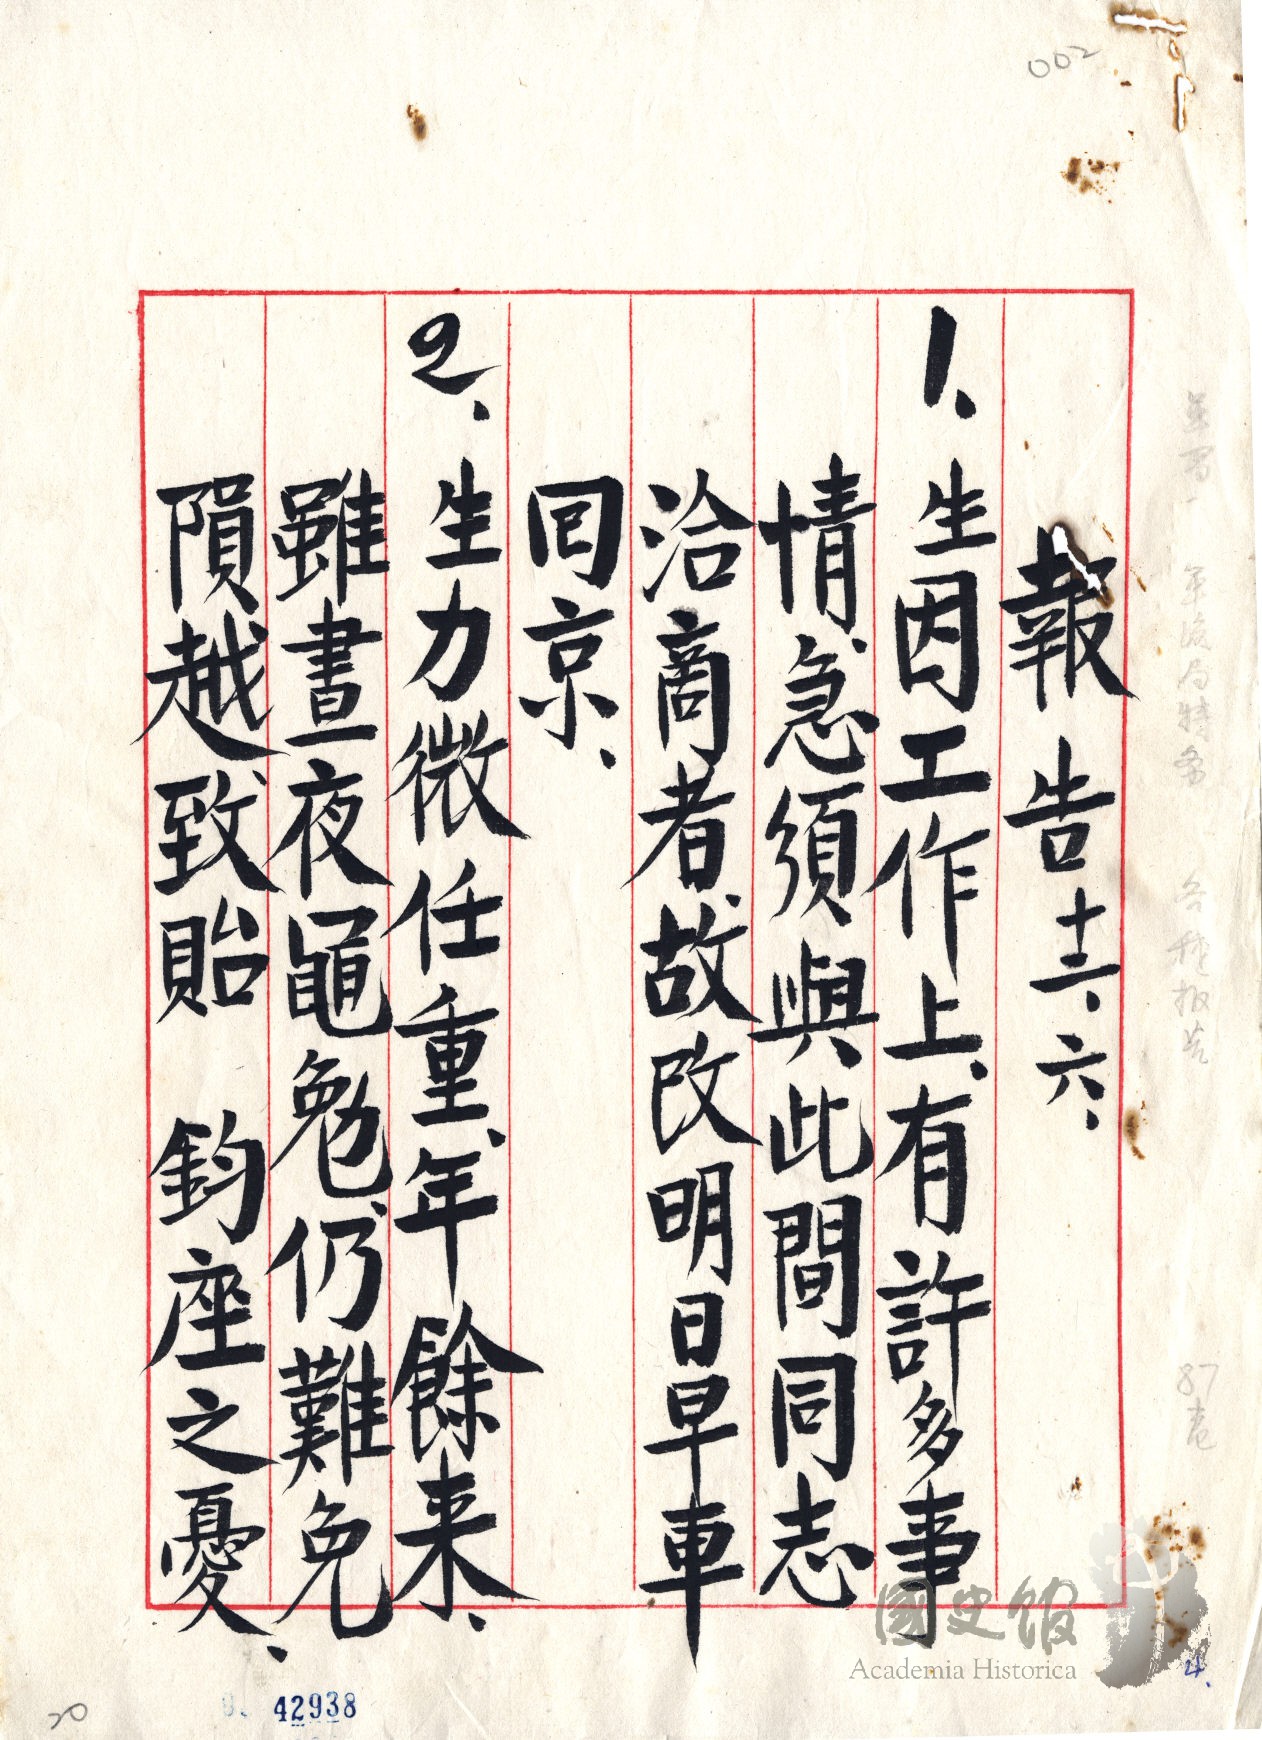 002
報告 十二、六、
1、生因工作上、有許多事
情、急須與此間同志
洽商者、故改明日早車
囘京、
2、生力微任重、年餘来、
雖晝夜黽勉、仍難免
隕越、致貽 鈞座之憂、
各種报告
87卷
國史館
Academia Historica
4.
42938
20